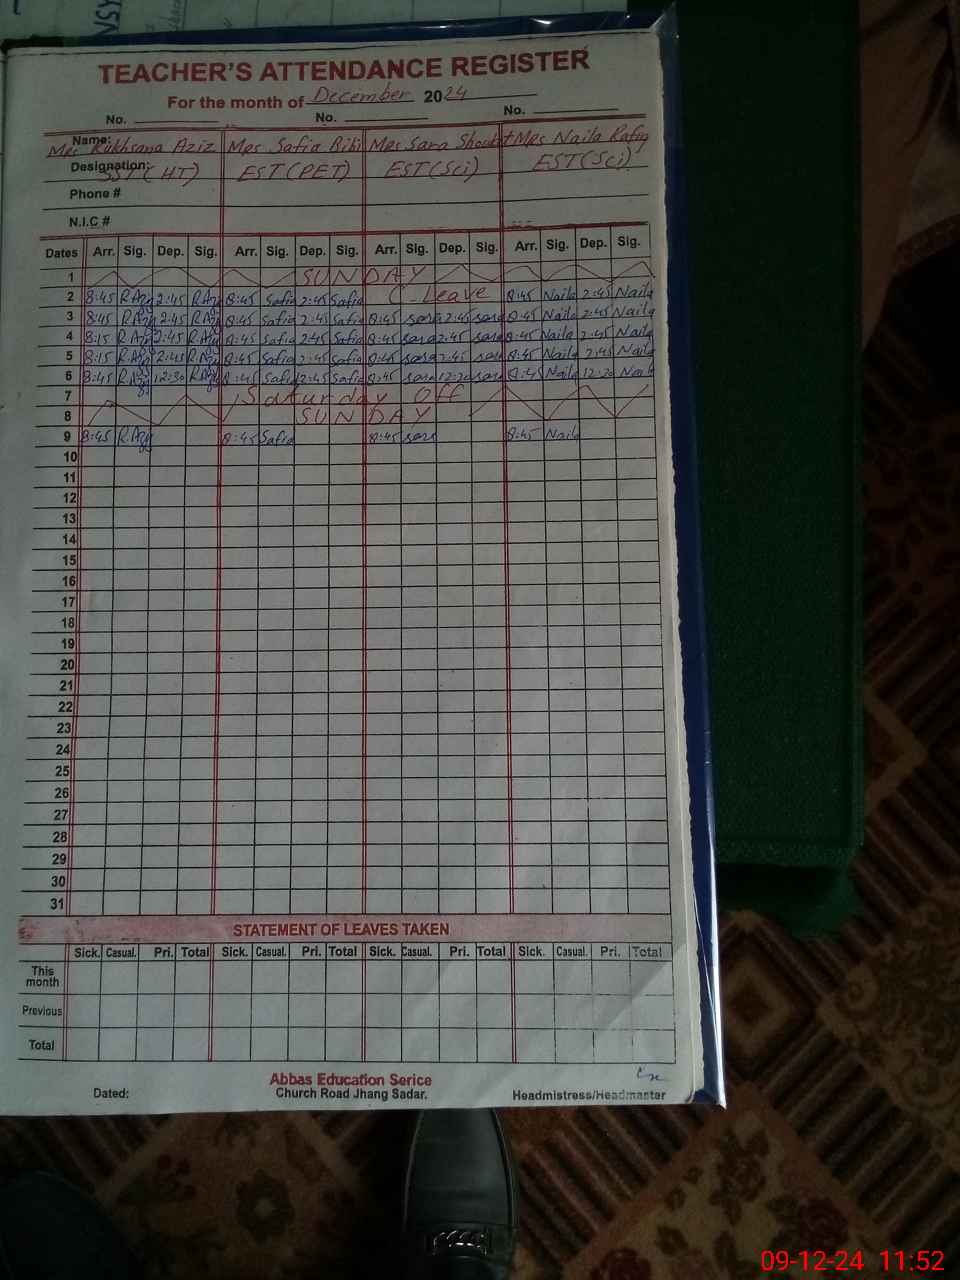 TEACHER'S ATTENDANCE REGISTER
For the month of December 2024
No. No. No.
Name: Mrs Rukhsana Aziz Mrs Safia Bibi Mrs Sara Shoukat Mrs Naila Rafiq
Designation: SST(HT) EST(PET) EST(Sci) EST(Sci)
Phone #
N.I.C #
Dates Arr. Sig. Dep. Sig. Arr. Sig. Dep. Sig. Arr. Sig. Dep. Sig. Arr. Sig. Dep. Sig.
1 SUNDAY
2 8:45 R.Aziz 2:45 R.Aziz 8:45 Safia 2:45 Safia C.Leave 8:45 Naila 2:45 Naila
3 8:45 R.Aziz 2:45 R.Aziz 8:45 Safia 2:45 Safia 8:45 sara 2:45 sara 8:45 Naila 2:45 Naila
4 8:15 R.Aziz 2:45 R.Aziz 8:45 Safia 2:45 Safia 8:45 sara 2:45 sara 8:45 Naila 2:45 Naila
5 8:15 R.Aziz 2:45 R.Aziz 8:45 Safia 2:45 Safia 8:45 sara 2:45 sara 8:45 Naila 2:45 Naila
6 8:45 R.Aziz 12:30 R.Aziz 8:45 Safia 12:45 Safia 8:45 sara 12:20 sara 8:45 Naila 12:20 Naila
7 Saturday Off
8 SUNDAY
9 8:45 R.Aziz 8:45 Safia 8:45 sara 8:45 Naila
10
11
12
13
14
15
16
17
18
19
20
21
22
23
24
25
26
27
28
29
30
31
STATEMENT OF LEAVES TAKEN
Sick. Casual. Pri. Total Sick. Casual. Pri. Total Sick. Casual. Pri. Total Sick. Casual. Pri. Total
This month
Previous
Total
Abbas Education Serice
Dated: Church Road Jhang Sadar. Headmistress/Headmaster
09-12-24 11:52